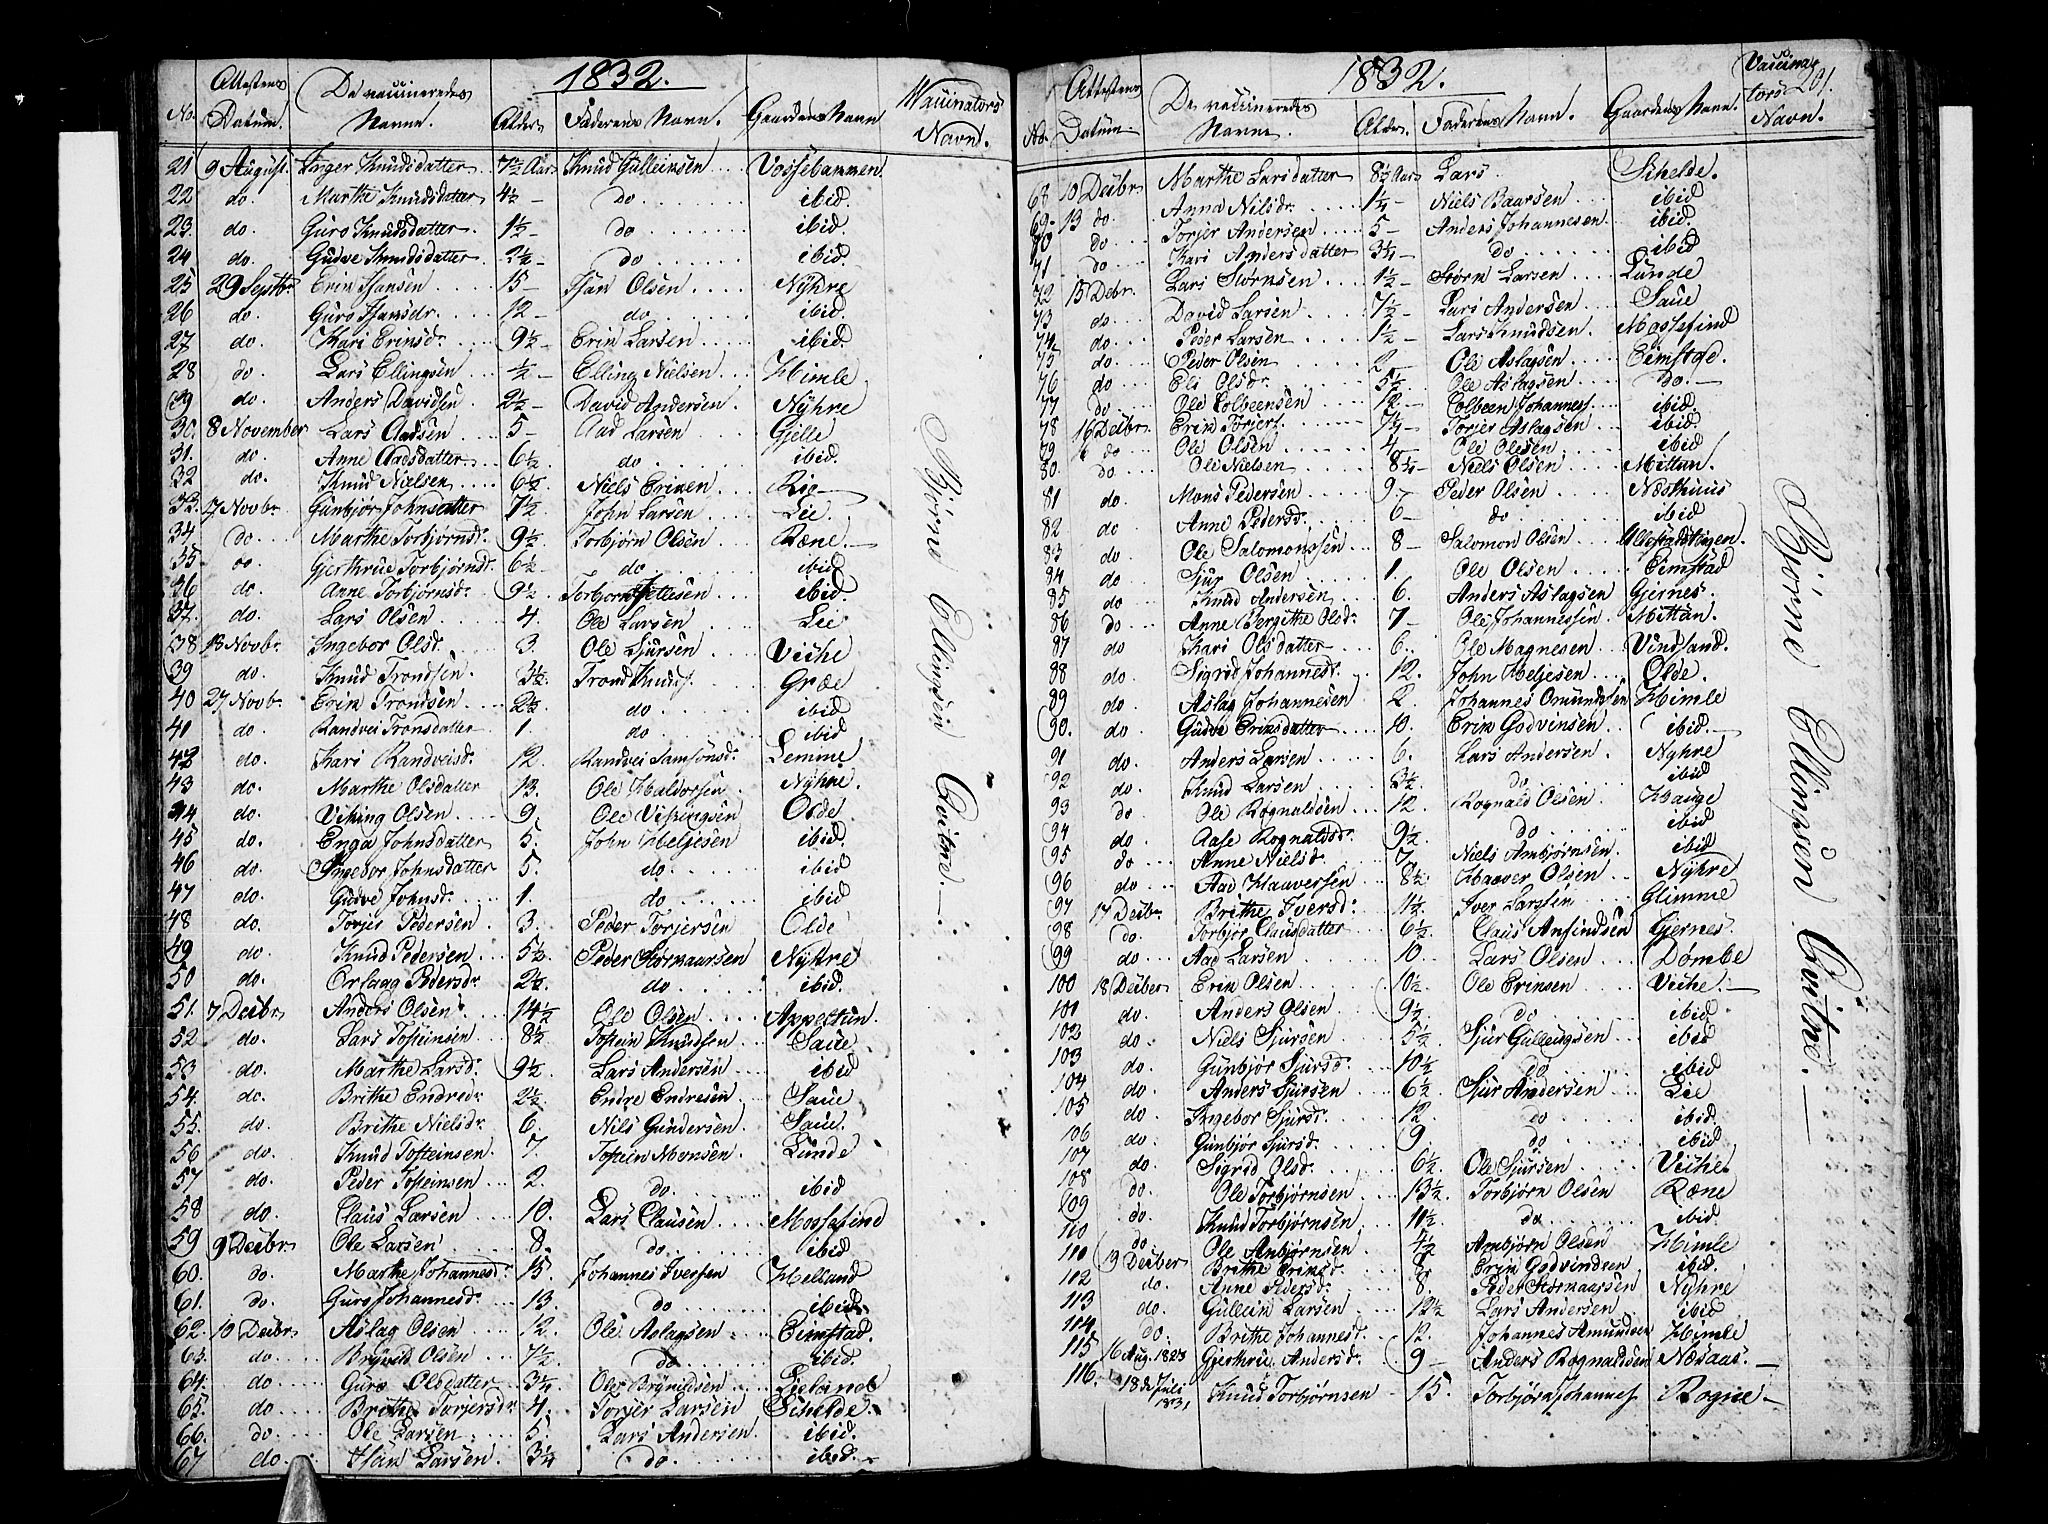 1832.
No. Attestens Datum. De vaccineredes Navne. Alder Faderens Navn. Gaardens Navn Vaccinators Navn.
21 9 August Inger Knudsdatter 7½ Aar Knud Gulleinsen Vossebammen
22 do. Marthe Knudsdatter 4½ — do ibid.
23. do. Guro Knudsdatter. 1½ — do ibid.
24 do. Gudve Knudsdatter 2¾ — do ibid.
25 29 Septbr Erik Isansen 15 — Isan Olsen Nyhre
26 do. Guro Isansdr. 12 — do ibid.
27 do. Kari Eriksd. 9½ — Erik Larsen ibid.
28 do Lars Ellingsen ½ — Elling Nielsen Himle
29 do. Anders Davidsen 2½ — David Andersen. Nyhre
30. 8 November Lars Aadsen 5 — Aad Larsen Gjelle
31. do. Anne Aadsdatter 6½ do ibid.
32 do. Knud Nielsen 6½ Niels Eriksen Rie
33. 17 Novbr Gunbjør Johnsdatter 7½ John Larsen Lie.
34 do Marthe Torbjørnsd. 9½ Torbjørn Olsen Ræne. —
35. do. Gjerthrue Torbjørnsdr 6½ do ibid
36 do. Anne Torbjørnsd. 9½ Torbjørn ibid.
37. do. Lars Olsen 4. Ole Larsen Lie
38 13 Novbr. Ingebor Olsd. 3. Ole Sjursen Vethe
39 do. Knud Trondsen 3½. Trond Knuds. Græe
40 27 Novbr. Erik Trondsen 2½ do ibid
41 do. Randvei Tronsdatter 1. do ibid
42 do. Kari Randveisd. 12. Randvei Samsonsd. Lemme
43. do. Marthe Olsdatter 13. Ole Haldorsen Nyhre.
44. do. Viking Olsen 9. Ole Vikingsen Olde
45 do. Enga Johnsdatter 5. John Heljesen ibid.
46 do. Ingebor Johnsdatter 5. do. ibid
47 do. Gudve Johnsd. 1. do ibid
48 do. Torjer Pedersen 3. Peder Torjersen Olde
49 do. Knud Pedersen 5½. Peder Stormaarsen Nyhre
50 do. Orlaug Pedersdr 2½. do ibid.
51. 7 Decbr Anders Olsen 14½ Ole Olsen Appeltun.
52 do. Lars Tosteinsen 8½ Tostein Knudsen Saue
53 do. Marthe Larsd. 9½. Lars Andersen ibid
54. do. Brithe Endredr 2½. Endre Endresen Saue
55. do. Brithe Nielsdr 6. Nils Gundersen Saue
56 do. Knud Tosteinsen. 7. Tostein Monsen Lunde
57 do. Peder Tosteinsen 2. do. ibid
58 do. Claus Larsen 10. Lars Clausen Mossefind
59 9 Decbr Ole Larsen 8. do. ibid
60. do. Marthe Johannesd. 15. Johannes Iversen Helland
61. do. Guro Johannesd. 13. do ibid.
62. 10 Decbr Aslag Olsen 12. Ole Aslagsen Eimstad.
63. do. Brynild Olsen 7½. do ibid.
64. do Guro Olsdatter 3¼. Ole Brynildsen Lieland
65. do Brithe Torjersdr 4. Torjer Larsen Schelde.
66. do Ole Larsen 5. Lars Andersen ibid.
67 do. Isak Larsen. 3¼ do ibid.
Bjørne Ellingsen Qvitne. —
1832.
201.
No. Attestens Datum. De vaccineredes Navne. Alder. Faderens Navn. Gaardens Navn. Vaccinators Navn.
68 10 Decbr Marthe Larsdatter 8½ Aar Lars Schelde.
69. 13 do Anna Nilsdr. 1¼ — Niels Baarsen ibid
70 do Torjer Andersen 5 — Anders Johannesen ibid
71 do. Kari Andersdatter 3¼ — do ibid
72 15 Decbr. Lars Storksen 1½ — Stork Larsen Lunde
73 do. David Larsen 7½ — Lars Andersen Saue
74 do. Peder Larsen 1½ — Lars Knudsen. Mossefind
75 do. Peder Olsen 2 — Ole Aslagsen Eimstad.
76 do. Eli Olsdr. 5½. Ole Aslagsen do. —
77 do Ole Colbeensen 12 — Colbeen Johannes. ibid.
78 16 Decbr. Erik Torjers. 7¾ — Torjer Aslagsen ibid.
79 do Ole Olsen 4 — Ole Olsen ibid
80 do. Ole Nielsen 8¼ — Niels Olsen Mittun.
81 do. Mons Pedersen 9. — Peder Olsen Næsthuus
82 do Anne Pedersd. 6 — do ibid
83 do. Ole Salomonssen 8 — Salomon Olsen
84 do. Sjur Olsen 1. Ole Olsen Eimstad
85 do Knud Andersen 6. Anders Aslagsen Gjernes.
86 do. Anne Bergithe Olsd. 7 — Ole Johannessen Mittun.
87 do Kari Olsdatter 6. Ole Magnesen Vindsand.
88 do. Sigrid Johannesd. 12. John Heljesen Olde.
89 do. Aslag Johannesen 2. Johannes Omundsen Himle
90. do. Gudve Eriksdatter 10. Erik Godvinsen ibid.
91 do. Anders Larsen 6. Lars Andersen Nyhre
92 do. Knud Larsen 3½. do ibid
93 do. Ole Rognaldsen 12. Rognald Olsen. Hauge
94 do. Aase Rognaldsd. 9½. do ibid
95 do Anne Nielsd. 7. Niels Ambjørnsen. ibid
96 do Aad Haaversen 8½. Haaver Olsen Nyhre
97 17 Decbr Brithe Iversd. 1½. Iver Larssen Glimme
98 do. Torbjør Clausdatter 6½. Claus Anfindsen Gjernes.
99 do. Aad Larsen 10. Lars Olsen Dømbe
100 18 Decber Erik Olsen 10½. Ole Eriksen Vethe. —
101 do. Anders Olsen 9½. do ibid
102 do. Niels Sjursen 5½. Sjur Gullengsen ibid
103 do. Gunbjør Sjursd. 10½ do ibid
104 do. Anders Sjursen 6½. Sjur Andersen Lie
105 do. Ingebor Sjursd. 12. do ibid.
106 do. Gunbjør Sjursd. 9 do ibid
107 do. Sigrid Olsd. 6½. Ole Sjursen Vethe.
108 do. Ole Torbjørnsen 13½. Torbjørn Olsen Ræne
109 do. Knud Torbjørnsen 11½. do ibid.
110 do Ole Anbjørnsen 4½ Ambjørn Olsen Himle
111 19 Decber Brithe Eriksd. 8. Erik Godvindsen ibid.
112 do. Anne Pedersd. 8. Peder Stormaarsen Nyhre
113 do. Gullein Larsen 12½ Lars Andersen ibid
114 do. Brithe Johannesd. 12. Johannes Amundsen Himle
115 16 Aug. 1823 Gjerthrue Andersd. 9 — Anders Rognaldsen Næsaas. —
116. 18 de Juli 1831 Knud Torbjørnsen 15. Torbjørn Johannes. Rogne —
Bjørne Ellingsen Qvitne. —